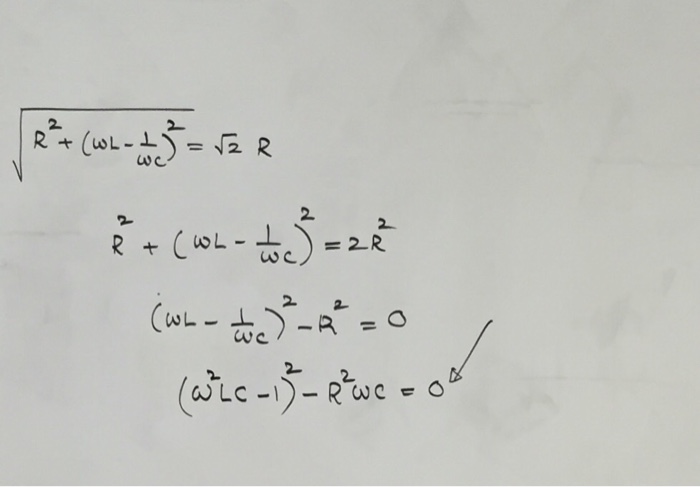 √(R² + (ωL - 1/ωC)²) = √2 R
R² + (ωL - 1/ωC)² = 2R²
(ωL - 1/ωC)² - R² = 0
(ω²LC - 1)² - R²ωC = 0